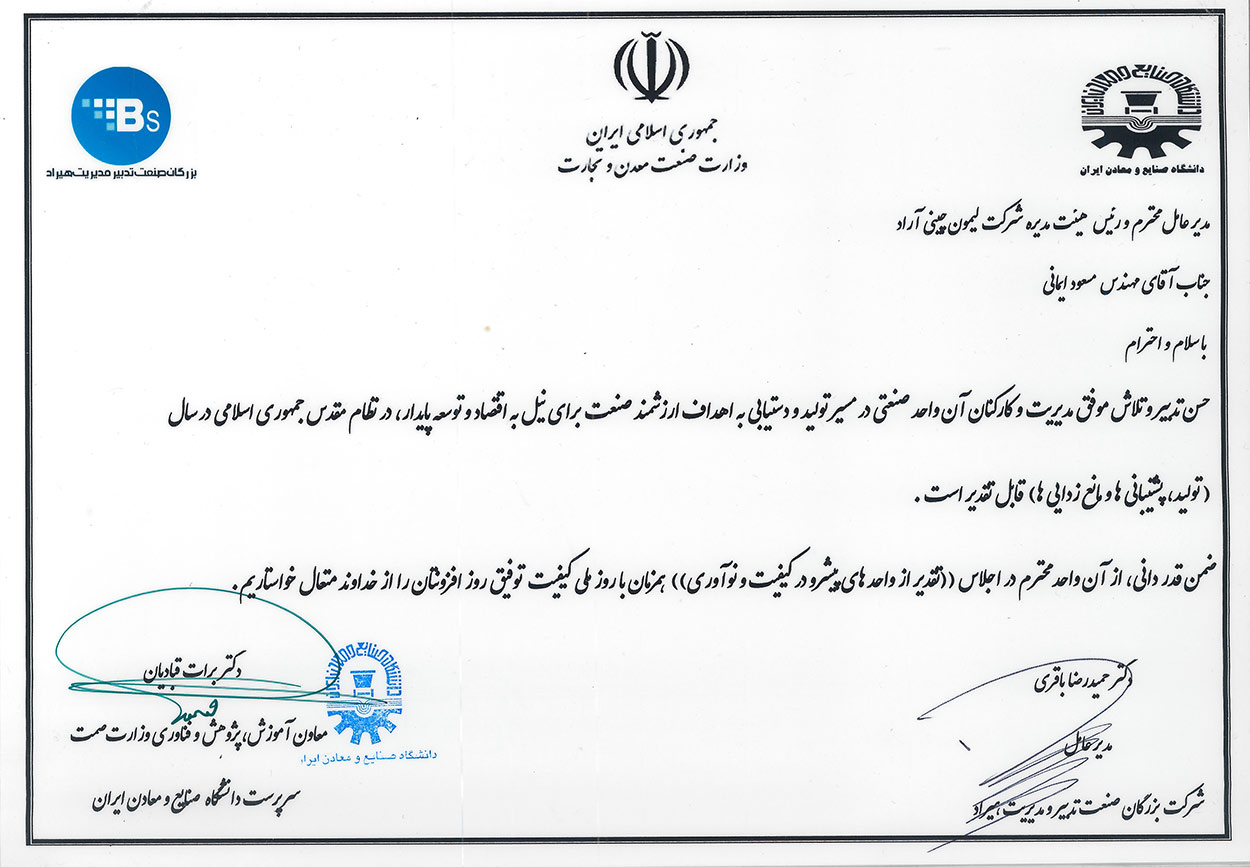 جمهوری اسلامی ایران
وزارت صنعت معدن و تجارت
دانشگاه صنایع و معادن ایران
دانشگاه صنایع و معادن ایران
Bs
بزرگان صنعت تدبیر مدیریت هیراد
مدیر عامل محترم و رئیس هیئت مدیره شرکت لیمون چینی آراد
جناب آقای مهندس مسعود ایمانی
باسلام و احترام
حسن تدبیر و تلاش موفق مدیریت و کارکنان آن واحد صنعتی در مسیر تولید و دستیابی به اهداف ارزشمند صنعت برای نیل به اقتصاد و توسعه پایدار، در نظام مقدس جمهوری اسلامی در سال
(تولید، پشتیبانی ها و مانع زدایی ها) قابل تقدیر است .
ضمن قدر دانی، از آن واحد محترم در اجلاس ((تقدیر از واحد های پیشرو در کیفیت و نوآوری)) همزمان با روز ملی کیفیت توفیق روز افزونتان را از خداوند متعال خواستاریم .
دکتر حمیدرضا باقری
مدیرعامل
شرکت بزرگان صنعت تدبیر و مدیریت هیراد
دکتر برات قبادیان
معاون آموزش، پژوهش و فناوری وزارت صمت
سرپرست دانشگاه صنایع و معادن ایران
دانشگاه صنایع و معادن ایران
دانشگاه صنایع و معادن ایرا